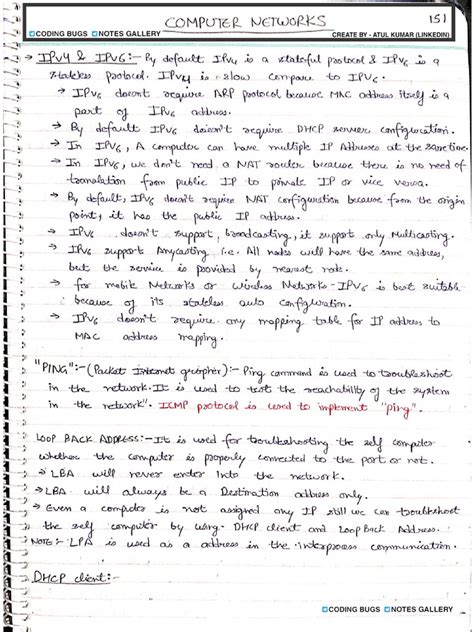 COMPUTER NETWORKS 151
CODING BUGS NOTES GALLERY CREATE BY - ATUL KUMAR (LINKEDIN)
→ IPv4 & IPv6:- By default IPv4 is a stateful protocol & IPv6 is a
stateless protocol. IPv4 is slow compare to IPv6.
→ IPv6 doesn't require ARP protocol because MAC address itself is a
part of IPv6 address.
→ By default IPv6 doesn't require DHCP server configuration.
→ In IPv6, A computer can have multiple IP Addresses at the same time.
→ In IPv6, we don't need a NAT router because there is no need of
translation from public IP to private IP or vice versa.
→ By default, IPv6 doesn't require NAT configuration because from the origin
point, it has the public IP address.
→ IPv6 doesn't support, broadcasting, it support only Multicasting.
→ IPv6 support Anycasting i.e. All nodes will have the same address,
but the service is provided by nearest node.
→ for mobile Networks or Wireless Networks - IPv6 is best suitable
because of its stateless auto configuration.
→ IPv6 doesn't require any mapping table for IP address to
MAC address mapping.
"PING":- (Packet Internet gropher):- Ping command is used to troubleshoot
in the network. It is used to test the reachability of the system
in the network". ICMP protocol is used to implement "ping".
LOOP BACK ADDRESS:- It is used for troubleshooting the self computer
whether the computer is properly connected to the port or not.
→ LBA will never enter into the network.
→ LBA will always be a Destination address only.
→ Even a computer is not assigned any IP still we can troubleshoot
the self computer by using DHCP client and Loop Back Address.
NOTE:- LPA is used as a address in the interprocess communication.
DHCP client:-
CODING BUGS NOTES GALLERY